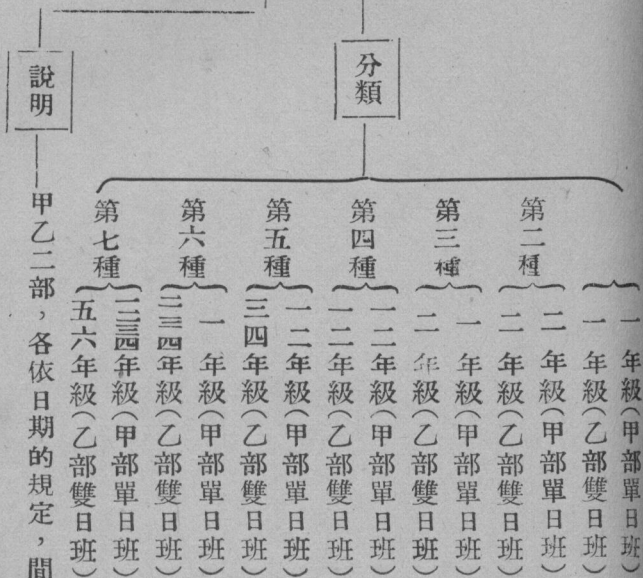 分類
一年級(甲部單日班)
一年級(乙部雙日班)
第二種
二年級(甲部單日班)
二年級(乙部雙日班)
第三種
一年級(甲部單日班)
二年級(乙部雙日班)
第四種
一二年級(甲部單日班)
一二年級(乙部雙日班)
第五種
一二年級(甲部單日班)
三四年級(乙部雙日班)
第六種
一年級(甲部單日班)
二三四年級(乙部雙日班)
第七種
一二三四年級(甲部單日班)
五六年級(乙部雙日班)
說明
甲乙二部，各依日期的規定，間